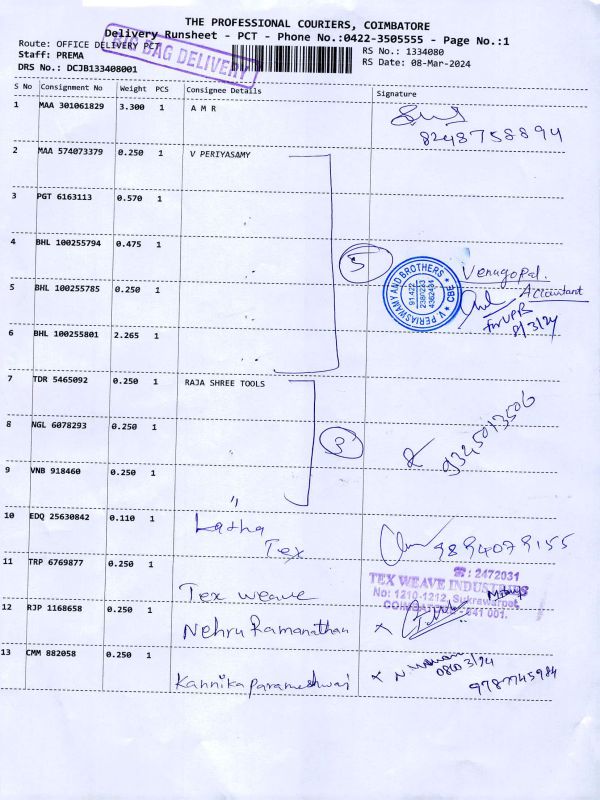 THE PROFESSIONAL COURIERS, COIMBATORE
Delivery Runsheet - PCT - Phone No.:0422-3505555 - Page No.:1
Route: OFFICE DELIVERY PCT
RS No.: 1334080
Staff: PREMA
BAG DELIVERY
RS Date: 08-Mar-2024
DRS No.: DCJB133408001
S No Consignment No Weight PCS Consignee Details Signature
1 MAA 301061829 3.300 1 A M R
8248758894
2 MAA 574073379 0.250 1 V PERIYASAMY
3 PGT 6163113 0.570 1
4 BHL 100255794 0.475 1
5
V PERIASWAMY AND BROTHERS * CBE *
91 422
2380223
4362431
Venugopal.
Accountant
for VPB
8/3/24
5 BHL 100255785 0.250 1
6 BHL 100255801 2.265 1
7 TDR 5465092 0.250 1 RAJA SHREE TOOLS
8 NGL 6078293 0.250 1
3
9345013506
9 VNB 918460 0.250 1
"
10 EDQ 25630842 0.110 1 Latha
Tex
9894079155
11 TRP 6769877 0.250 1 Tex weave
☎: 2472031
TEX WEAVE INDUSTRIES
No: 1210-1212, Sukrawarpet,
COIMBATORE - 641 001.
12 RJP 1168658 0.250 1 Nehru Ramanathan x
13 CMM 882058 0.250 1 Kannika Parameshwari x
9787745984